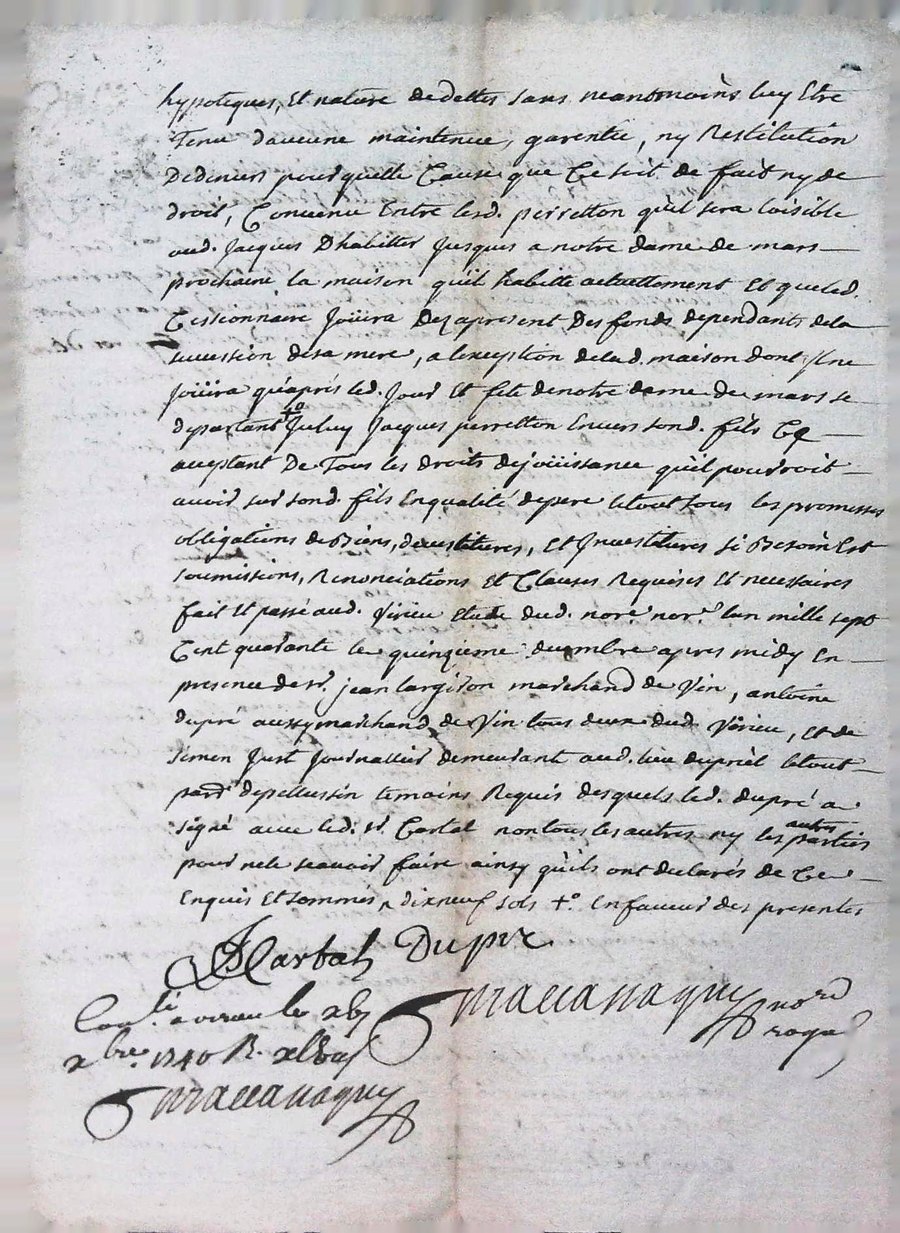 hypoteques, Et nature de dettes sans neantmoins luy Etre
Tenu d'aucune maintenue, garentie, ny Restitution
De deniers pour quelle Cause que Ce soit de fait ny de
droit, Convenu Entre lesd. perretton qu'il sera loisible
aud. Jacques D'habitter Jusques a notre dame de mars
prochaine la maison qu'il habitte actuellement Et que led.
Cessionnaire Joüira Dez apresent Des fonds dependants de la
succession de sa mere, a l'exception de lad. maison dont Il ne
joüira qu'apres led. Jour Et fete de notre dame de mars se
departant Iceluy Jacques perretton Envers sond. fils
acceptant De Tous les droits de joüissance qu'il pourroit
avoir sur sond. fils En qualité de pere le tout sous les promesses
obligations de Biens, devestitures, Et Investitures si Besoin Est
soumissions, Renonciations Et Clauses Requises Et necessaires
fait Et passé aud. Virieu Etude dud. nore. lan mille sept
Cent quarante le quinzieme decembre apres midy En
presence de sr. jean largison marchand de Vin, antoine
dupré aussy marchand de Vin tous deux dud. Virieu, Et de
simon Just Journallier demeurant aud. lieu le tout
parr. de pellussin temoins Requis desquels led. dupré a
signé avec led. sr. Cartal non tous les autres ny les autres parties
pour ne le scavoir faire ainsy qu'ils ont declarés de Ce
Enquis Et sommés, dixneuf sols En faveur des presentes
Cartal Dupre